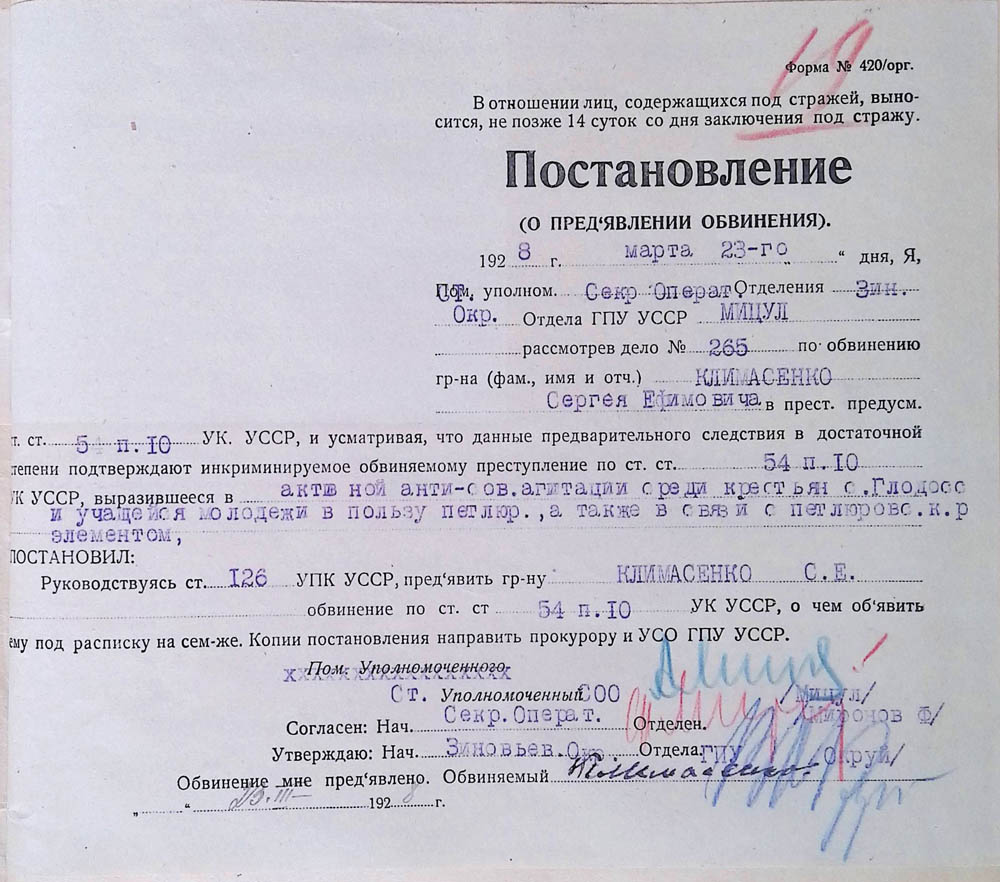 19
Форма № 420/орг.
В отношении лиц, содержащихся под стражей, выно-
сится, не позже 14 суток со дня заключения под стражу.
Постановление
(О ПРЕД‘ЯВЛЕНИИ ОБВИНЕНИЯ).
1928 г. марта 23-го „ “ дня, Я,
Ст. уполном. Секр Операт. Отделения Зин.
Окр. Отдела ГПУ УССР МИЦУЛ
рассмотрев дело № 265 по обвинению
гр-на (фам., имя и отч.) КЛИМАСЕНКО
Сергея Ефимовича в прест. предусм.
т. ст. 54 п.IO УК. УССР, и усматривая, что данные предварительного следствия в достаточной
тепени подтверждают инкриминируемое обвиняемому преступление по ст. ст. 54 п.IO
УК УССР, выразившееся в актив ной анти-сов.агитации среди крестьян с.Глодосс
и учащейся молодежи в пользу петлюр.,а также в связи с петлюровс.к.р
элементом,
ПОСТАНОВИЛ:
Руководствуясь ст. I26 УПК УССР, пред‘явить гр-ну КЛИМАСЕНКО С.Е.
обвинение по ст. ст 54 п.IO УК УССР, о чем об‘явить
ему под расписку на сем-же. Копии постановления направить прокурору и УСО ГПУ УССР.
Пом. Уполномоченного
Ст. Уполномоченный СОО /Мицул/
Согласен: Нач. Секр.Операт. Отделен. /Миронов Ф/
Утверждаю: Нач. Зиновьев.Окр Отдела ГПУ /Окруй/
Обвинение мне пред‘явлено. Обвиняемый Климасенко
„ 23.III “ 1928 г.